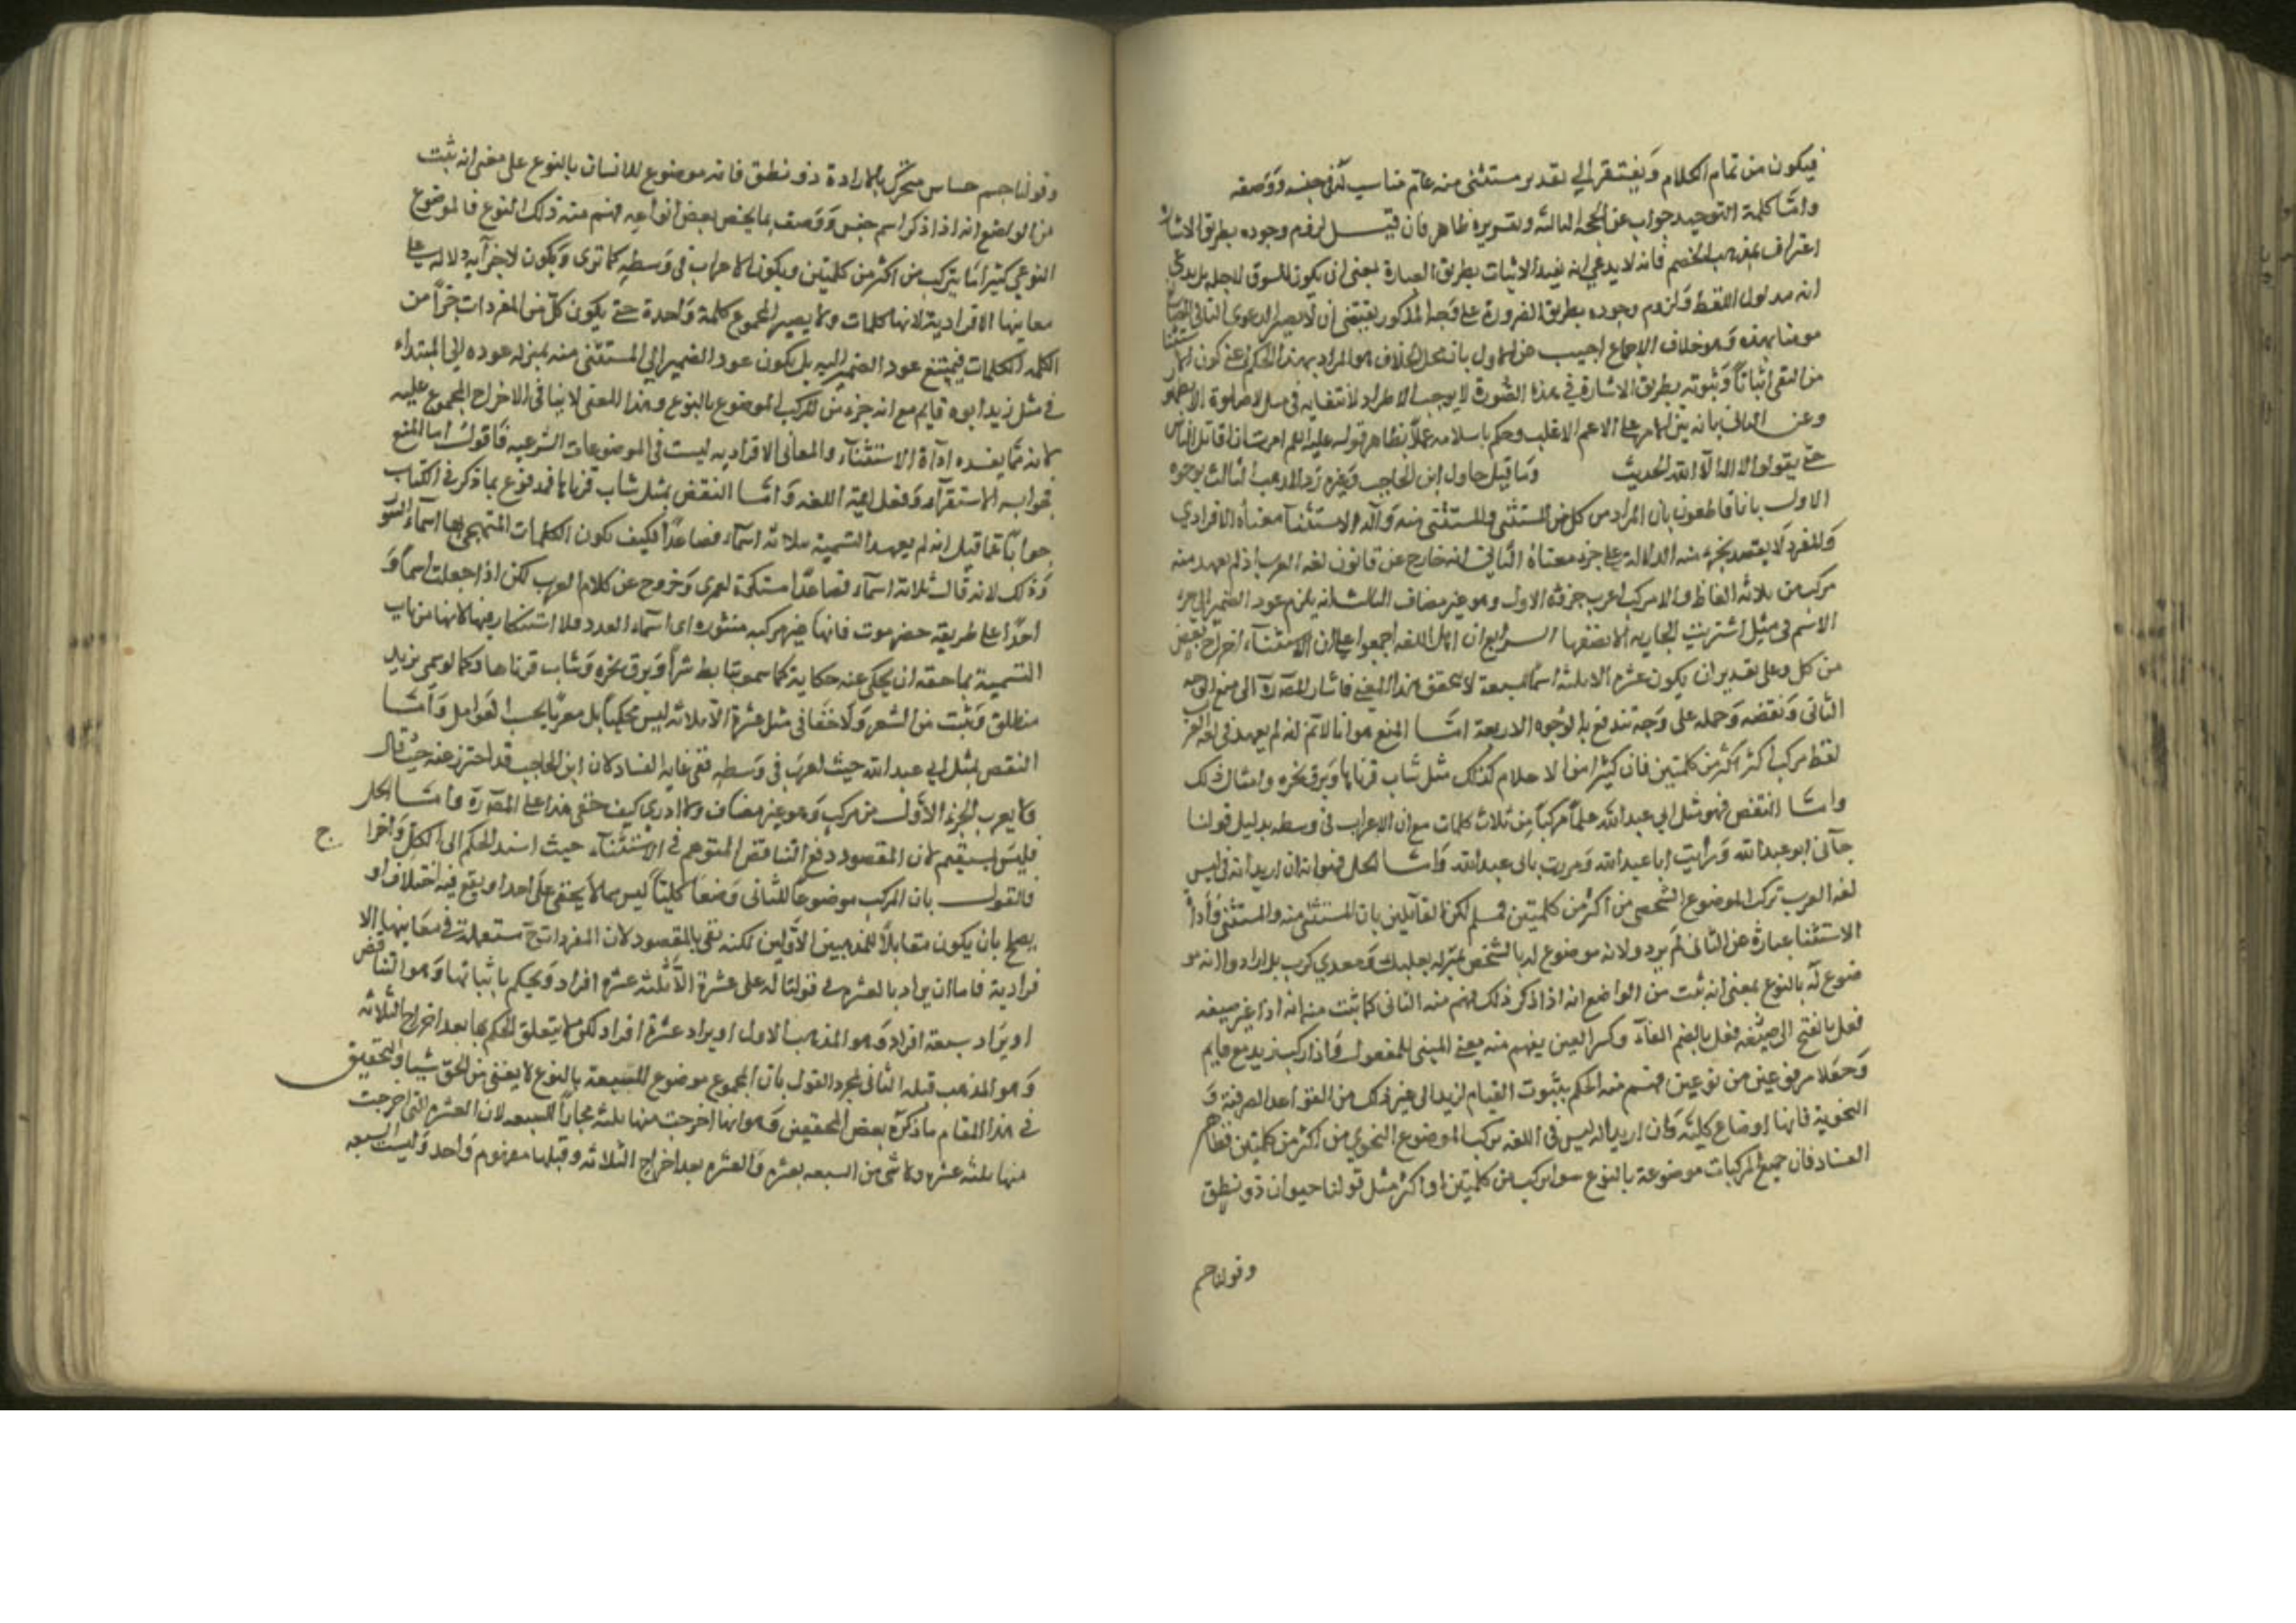 فيكون من تمام الكلام ويفتقر الي تقدير مستثنى منه عام مناسب له في جنسه ووصفه
واما كلمة التوحيد جواب عن الحجة الثالثة وتقريره ظاهر فان قيل لزوم وجوده بطريق الاشارة
اعتراف بمذهب الخصم فانه لا يدعي انه يفيد الاثبات بطريق العبارة بمعنى ان يكون السوق لاجله بل يدعي
انه مدلول اللفظ ولزوم وجوده بطريق الضرورة على وجه المذكور يقتضي ان لا يصير الدعوى النافي للصانع
مومنا بهذه وهو خلاف الاجماع اجيب عن الاول بان محل الخلاف هو المراد بهذا الحكم عني كون الاستثنا
من النفي اثباتا وثبوته بطريق الاشارة في هذه الصورة لا يوجب الاطراد لانتفايه في مثل لا صلوة الا بطهور
وعن الثاني بانه بني الامر على الاعم الاغلب وحكم باسلامه عملا بظاهر قوله عليه السلم امرت ان اقاتل الناس
حتي يقولوا لا اله الا الله الحديث وما قيل حاول ابن الحاجب وغيره رد المذهب الثالث بوجوه
الاول بانا قاطعون بان المراد من كل من المستثنى والمستثنى منه وآلة الاستثناء معناه الافرادي
والمفرد لا يقصد بجزء منه الدلالة على جزء معناه الثاني انه خارج عن قانون لغة العرب اذ لم يعهد منه
مركب من ثلاثة الفاظ ولا مركب اعرب جزؤه الاول وهو غير مضاف الثالث انه يلزم عود الضمير الي جزء
الاسم في مثل اشتريت الجارية الا نصفها الرابع ان اهل اللغة اجمعوا على ان الاستثناء اخراج بعض
من كل وعلى تقدير ان يكون عشرة الا ثلثة اسما لسبعة لا يتحقق هذا المعني فاشار المص ره الى منع الوجه
الثاني ونقضه وحمله على وجه تندفع به الوجوه الاربعة اما المنع هو انا لا نم انه لم يعهد في لغة العرب
لفظ مركب اكثر من كلمتين فان كثيرا من الاعلام كذلك مثل شاب قرناها وبرق نحره وامثال ذلك
واما النقض فهو مثل ابي عبد الله علما مركبا من ثلاث كلمات مع ان الاعراب في وسطه بدليل قولنا
جاني ابو عبد الله ورايت ابا عبد الله ومررت بابي عبد الله واما الحل فهو انه ان اريد انه في ليس
لغة العرب ترك الموضوع الشخصي من اكثر من كلمتين فمسلم لكن القائلين بان المستثنى منه والمستثنى واداة
الاستثنا عبارة عن الثاني لم يرد ولانه موضوع له بالشخص بمنزلة بعلبك ومعدي كرب بل ارادوا انه مو
ضوع له بالنوع بمعنى انه ثبت من الواضع انه اذا ذكر ذلك فهم منه الثاني كما ثبت منه انه اذا غير صيغه
فعل بالفتح الى صيغة فعل بالضم الفاء وكسر العين يفهم منه معنى المبني للمفعول واذا ركب زيد مع قايم
وجعلا مرفوعين من نوعين فهم منه الحكم بثبوت القيام لزيد الى غير ذلك من القواعد الصرفية و
النحوية فانها اوضاع كلية وان اريد انه ليس في اللغة مركب الموضوع النحوي من اكثر من كلمتين فظاهر
الفساد فان جميع المركبات موضوعة بالنوع سوا تركب من كلمتين او اكثر مثل قولنا حيوان ذو نطق
وقولنا جسم
وقولنا جسم حساس متحرك بالارادة ذو نطق فانه موضوع للانسان بالنوع على معنى انه ثبت
من الواضع انه اذا ذكر اسم جنس ووصف بما يخص بعض انواعه فهم منه ذلك النوع فالموضوع
النوعي كثيرا ما يتركب من اكثر من كلمتين ويكون الاعراب في وسطه كما ترى ويكون لاجزآيه دلالة على
معانيها الافرادية لانها كلمات ولا يصير المجموع كلمة واحدة حتي يكون كل من المفردات جزأ من
الكلمة الكلمات فيمتنع عود الضمير اليه بل يكون عود الضمير الي المستثنى منه بمنزلة عوده الي المبتداء
في مثل زيد ابوه قايم مع انه جزء من المركب الموضوع بالنوع وهذا المعنى لا ينافي الاخراج المجموع عليه
لانه مما يفيده اداة الاستثناء والمعاني الافرادية ليست في الموضوعات الشرعية فاقول اما المنع
فجوابه الاستقرآء ونقل ايمة اللغة واما النقض بمثل شاب قرناها فمدفوع بما ذكر في الكتاب
جوابا عما قيل انه لم يعهد التسمية بثلاثة اسماء فصاعدا فكيف تكون الكلمات المتهجي بها اسماء السور
وذلك لانه قال ثلاثة اسماء فصاعدا مستكرة لعمري وخروج عن كلام العرب لكن اذا جعلت اسما و
احدا على طريقة حضرموت فانها غير مركبه منثوره اى اسماء العدد فلا استنكار فيها لانها من باب
التسمية بما حقه ان يحكى عنه حكاية كما سموا بتابط شرا وبرق نحره وشاب قرناها وكما لو سمى بزيد
منطلق وبيت من الشعر ولا خفا في مثل عشرة الا ثلاثة ليس محكيا بل معربا بحسب العوامل واما
النقض بمثل ابي عبد الله حيث اعرب في وسطه ففي غاية الفساد لان ابن الحاجب قد احترز عنه حيث قال
ولا يعرب الجزء الاول من مركب وهو غير مضاف ولا ادري كيف خفي هذا على المص ره واما الحل
فليس بمستقيم لان المقصود دفع التناقض المتوهم في الاستثناء حيث اسند الحكم الى الكل واخرا ج
فالقول بان المركب موضوعا للثاني وضعا كليا ليس مما لا يخفى على احد او يقع فيه اختلاف او
يصلح بان يكون متقابلا للمذهبين الاولين لكنه نفي بالمقصود لان المفردات ح مستعملة في معانيها الا
فرادية فاما ان يراد بالعشرة في قولنا له على عشرة الا ثلثة عشرة افراد ويحكم باثباتها وهو التناقض
او يراد سبعة افراد وهو المذهب الاول او يراد عشرة افراد لكن لا يتعلق الحكم بها بعد اخراج الثلاثة
وهو المذهب قبله الثاني فمجرد القول بان المجموع موضوع للسبعة بالنوع لا يغني من الحق شيا والتحقيق
في هذا المقام ما ذكره بعض المحققين وهو انها اخرجت منها ثلثة مجازا للسبعة لان العشرة التي اخرجت
منها ثلثة عشرة ولا شي من السبعة بعشرة والعشرة بعد اخراج الثلاثة وقبلها مفهوم واحد وليست السبعة